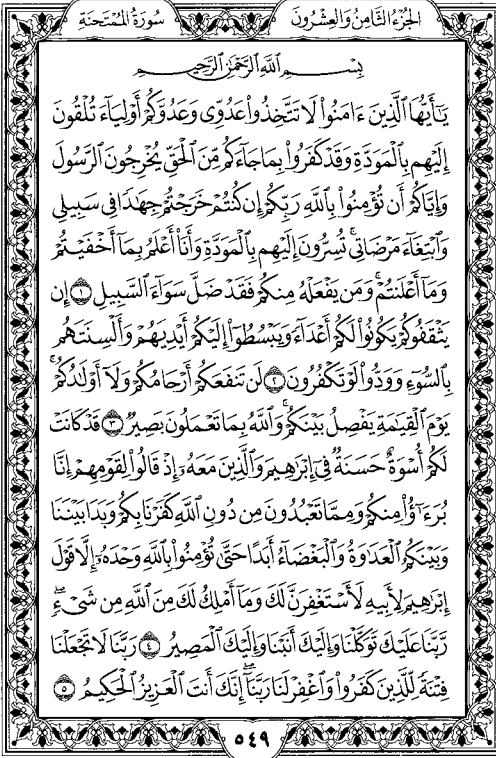 الجزء الثامن والعشرون
سورة الممتحنة
بِسْمِ اللَّهِ الرَّحْمَٰنِ الرَّحِيمِ
يَٰٓأَيُّهَا ٱلَّذِينَ ءَامَنُوا۟ لَا تَتَّخِذُوا۟ عَدُوِّى وَعَدُوَّكُمْ أَوْلِيَآءَ تُلْقُونَ
إِلَيْهِم بِٱلْمَوَدَّةِ وَقَدْ كَفَرُوا۟ بِمَا جَآءَكُم مِّنَ ٱلْحَقِّ يُخْرِجُونَ ٱلرَّسُولَ
وَإِيَّاكُمْ أَن تُؤْمِنُوا۟ بِٱللَّهِ رَبِّكُمْ إِن كُنتُمْ خَرَجْتُمْ جِهَٰدًا فِى سَبِيلِى
وَٱبْتِغَآءَ مَرْضَاتِى ۚ تُسِرُّونَ إِلَيْهِم بِٱلْمَوَدَّةِ وَأَنَا۠ أَعْلَمُ بِمَآ أَخْفَيْتُمْ
وَمَآ أَعْلَنتُمْ ۚ وَمَن يَفْعَلْهُ مِنكُمْ فَقَدْ ضَلَّ سَوَآءَ ٱلسَّبِيلِ ١ إِن
يَثْقَفُوكُمْ يَكُونُوا۟ لَكُمْ أَعْدَآءً وَيَبْسُطُوٓا۟ إِلَيْكُمْ أَيْدِيَهُمْ وَأَلْسِنَتَهُم
بِٱلسُّوٓءِ وَوَدُّوا۟ لَوْ تَكْفُرُونَ ٢ لَن تَنفَعَكُمْ أَرْحَامُكُمْ وَلَآ أَوْلَٰدُكُمْ ۚ
يَوْمَ ٱلْقِيَٰمَةِ يَفْصِلُ بَيْنَكُمْ ۚ وَٱللَّهُ بِمَا تَعْمَلُونَ بَصِيرٌ ٣ قَدْ كَانَتْ
لَكُمْ أُسْوَةٌ حَسَنَةٌ فِىٓ إِبْرَٰهِيمَ وَٱلَّذِينَ مَعَهُۥٓ إِذْ قَالُوا۟ لِقَوْمِهِمْ إِنَّا
بُرَءَٰٓؤُا۟ مِنكُمْ وَمِمَّا تَعْبُدُونَ مِن دُونِ ٱللَّهِ كَفَرْنَا بِكُمْ وَبَدَا بَيْنَنَا
وَبَيْنَكُمُ ٱلْعَدَٰوَةُ وَٱلْبَغْضَآءُ أَبَدًا حَتَّىٰ تُؤْمِنُوا۟ بِٱللَّهِ وَحْدَهُۥٓ إِلَّا قَوْلَ
إِبْرَٰهِيمَ لِأَبِيهِ لَأَسْتَغْفِرَنَّ لَكَ وَمَآ أَمْلِكُ لَكَ مِنَ ٱللَّهِ مِن شَىْءٍ ۖ
رَّبَّنَا عَلَيْكَ تَوَكَّلْنَا وَإِلَيْكَ أَنَبْنَا وَإِلَيْكَ ٱلْمَصِيرُ ٤ رَبَّنَا لَا تَجْعَلْنَا
فِتْنَةً لِّلَّذِينَ كَفَرُوا۟ وَٱغْفِرْ لَنَا رَبَّنَآ ۖ إِنَّكَ أَنتَ ٱلْعَزِيزُ ٱلْحَكِيمُ ٥
٥٤٩